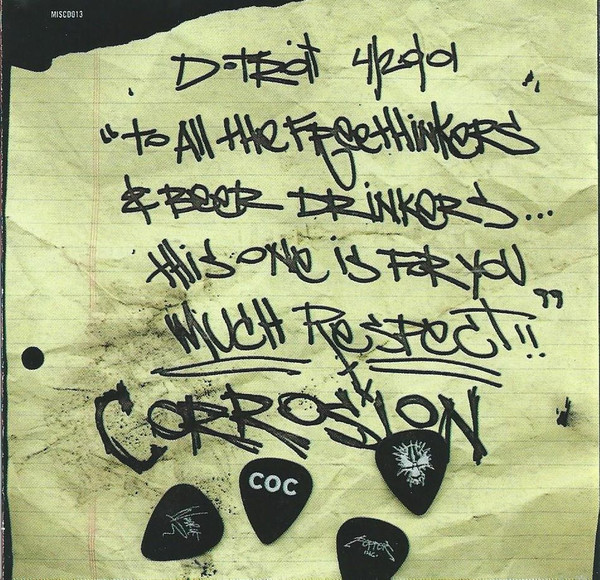 MISCD013
D-TROIT 4/20/01
"TO All tHE FREEtHiNKERS
& BEER DRiNKERS...
tHiS ONE iS FOR YOU
MUCH RESPECT!!"
CORROSiON
COC